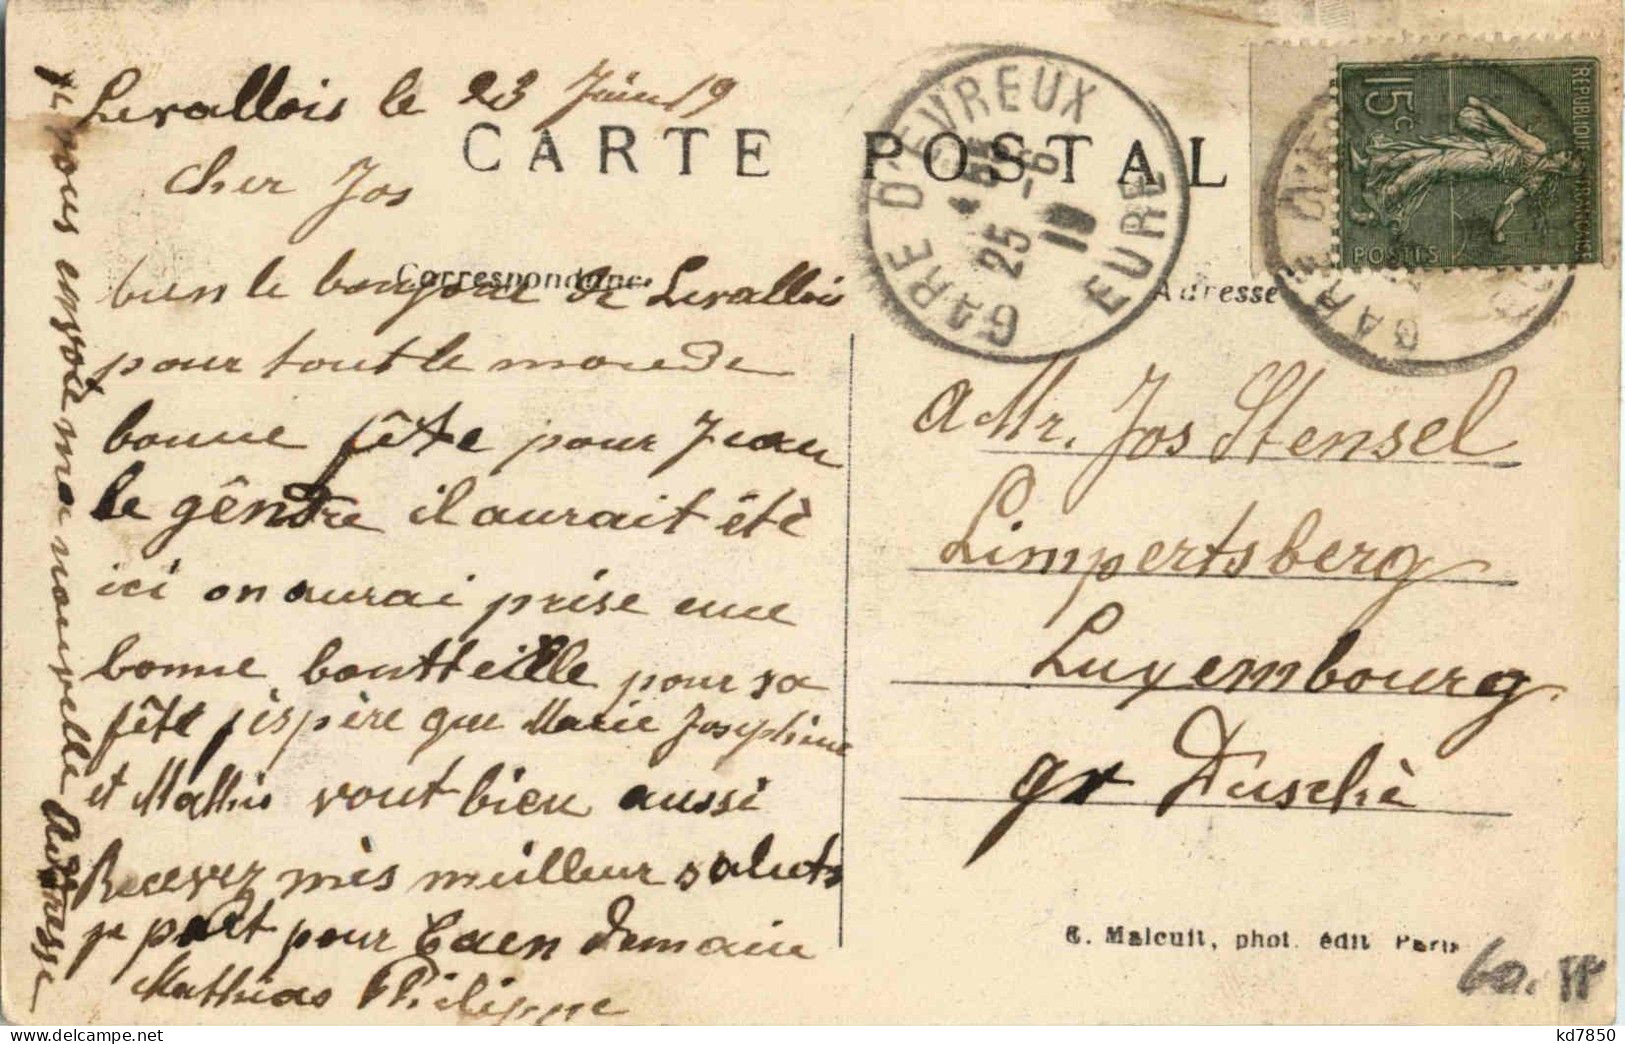 Levallois le 23 Juin 19
CARTE POSTALE
cher Jos
Correspondance
bien le bonjour de Levallois
pour tout le monde
bonne fête pour Jean
le gêndre il aurait étè
ici on aurai prise une
bonne boutteille pour sa
fête j'espère que Marie Josephine
et Mathis vont bien aussi
Recevez mès meilleur saluts
je part pour Caen demain
Mathias Philippe
je vous envoie ma nouvelle Adresse
GARE D'EVREUX
25 -6
19
EURE
REPUBLIQUE FRANCAISE
15c
POSTES
GARE D'E
Adresse
a Mr. Jos Stensel
Limpertsberg
Luxembourg
gr Duschè
C. Malcuit, phot. édit Paris
60.
kd7850